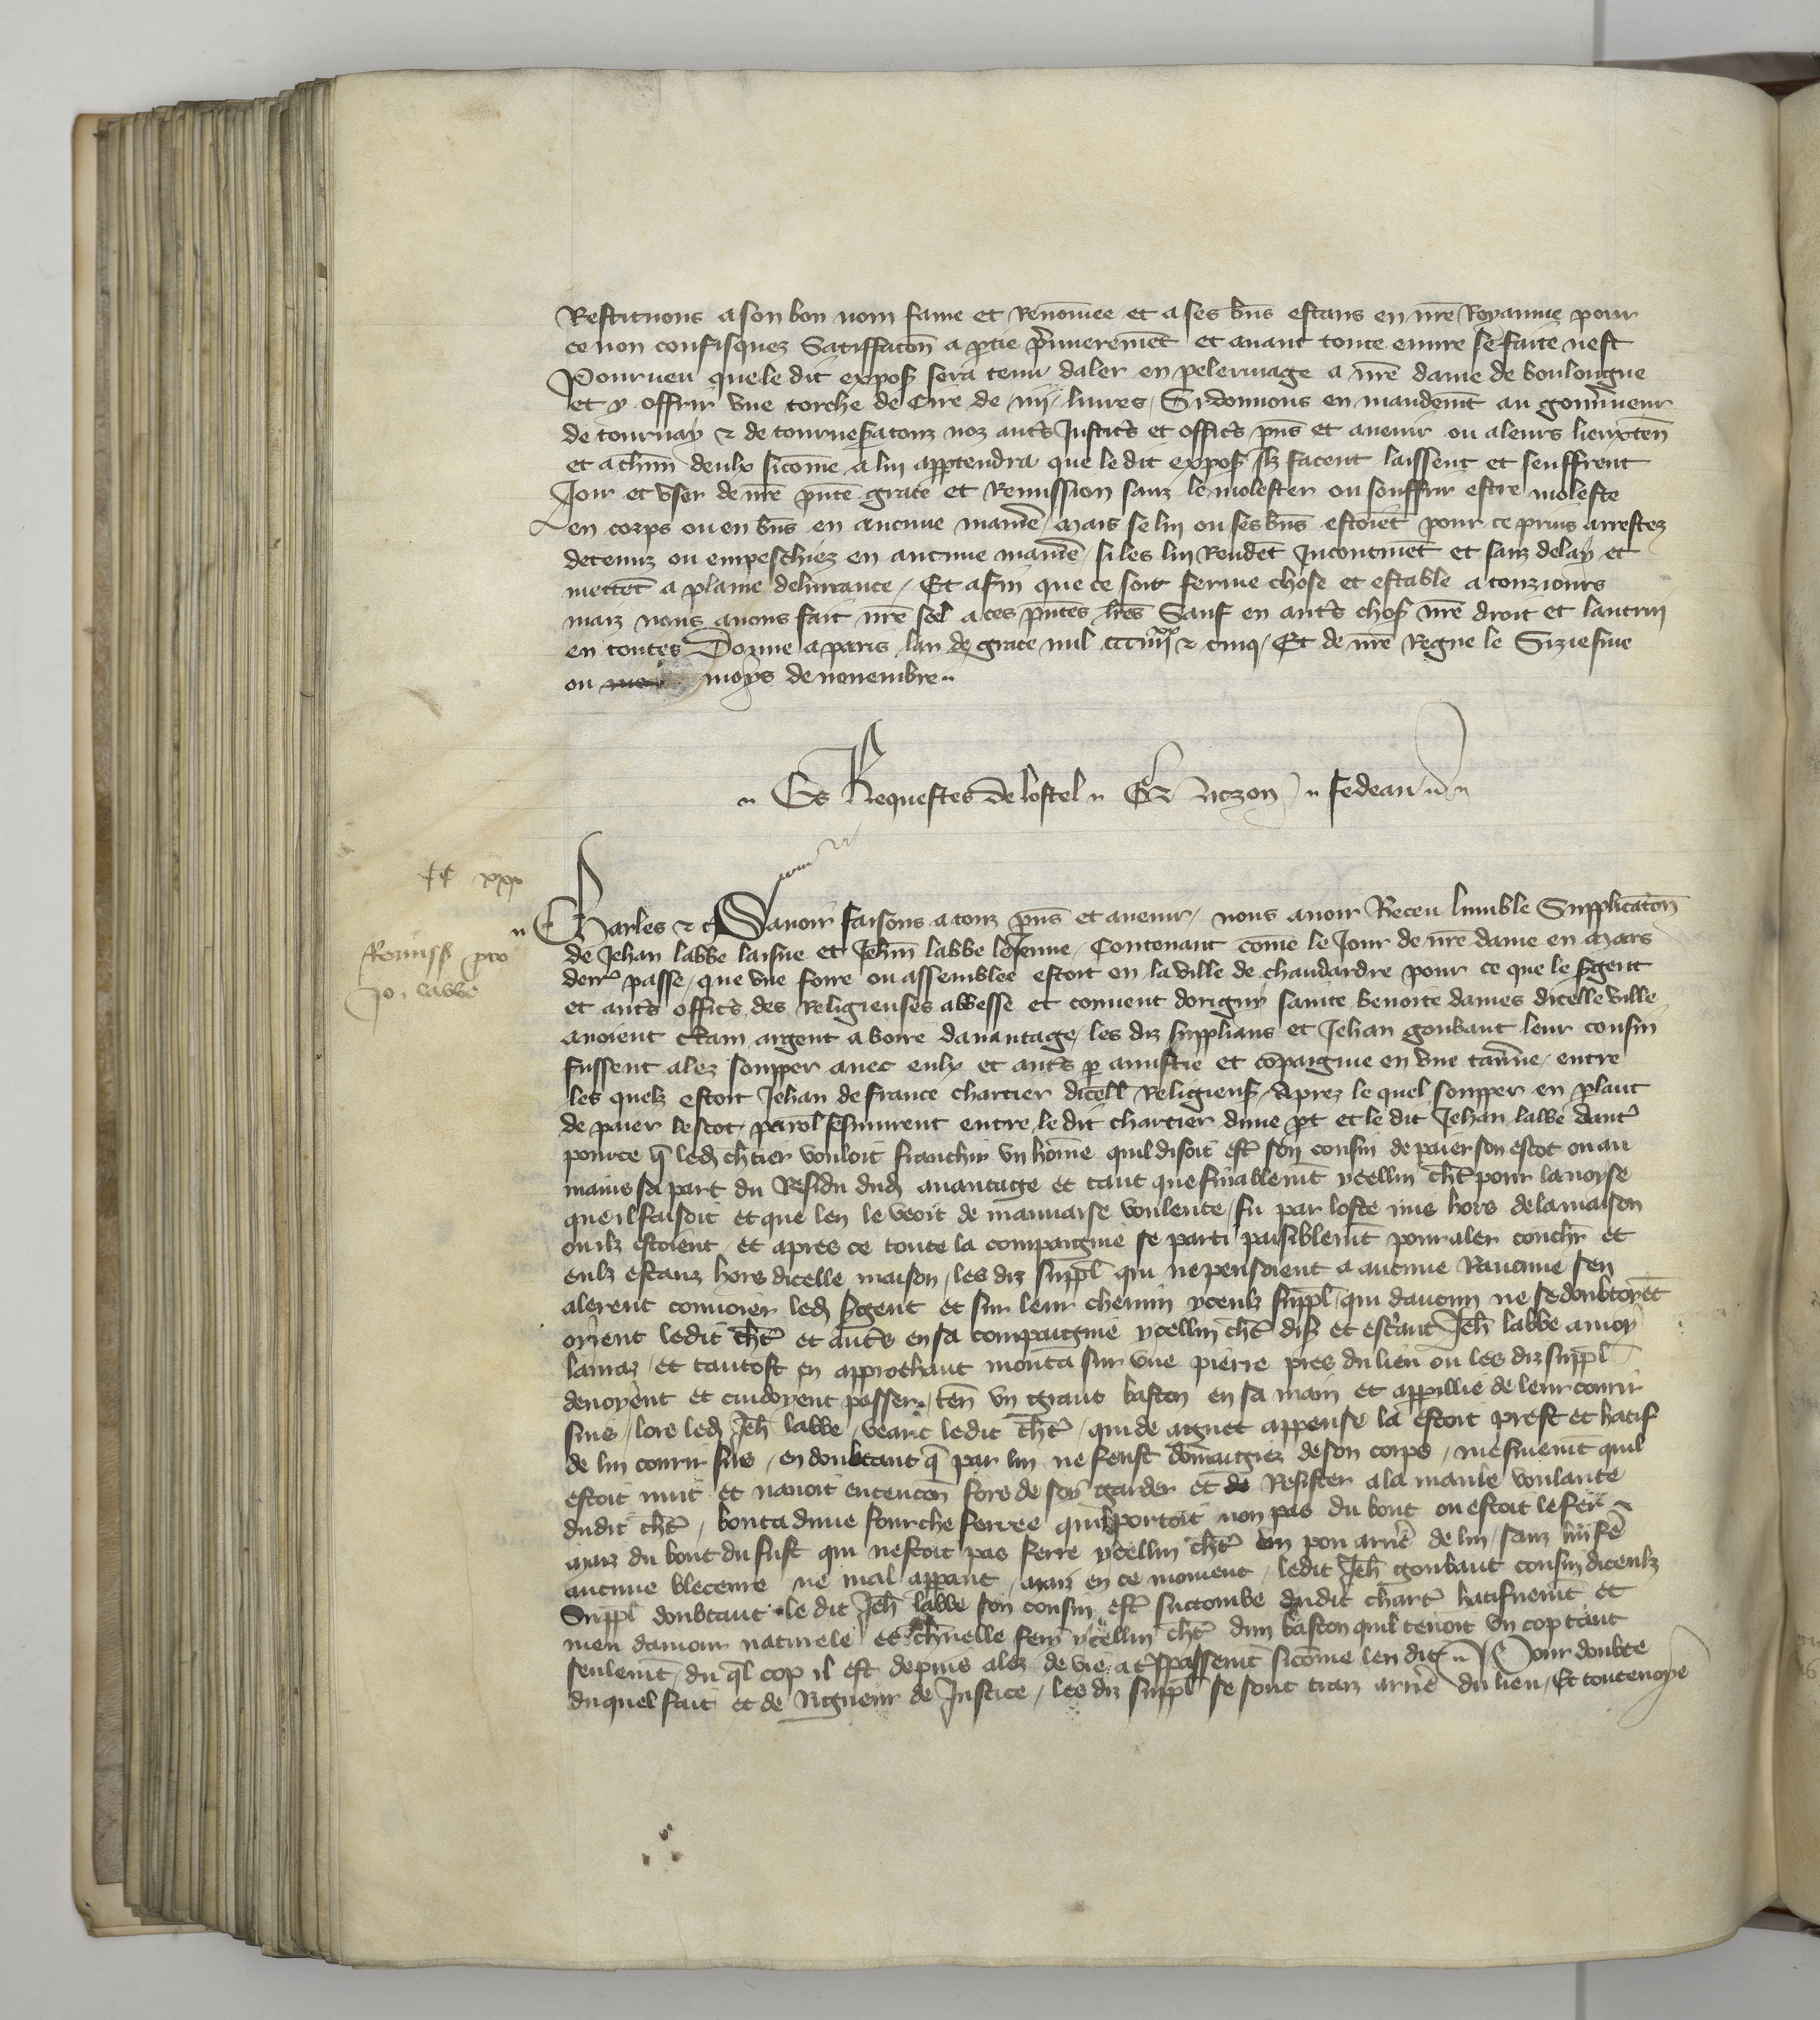 Restituons a son bon nom fame et Renom̄ee et a ses bn̄s estans en nr̄e Royaume pour
ce non confisquez Satiffacōn a ꝑtie pr̄mierem̄et et auant toute euure se faite nest
Pourueu que le dit exposꝭ sera tenu daler en pelerinage a nr̄e dame de boulongne
et y offrir vne torche de Cire de iiij liures Si donnons en mandem̄t au gouu̓neur
de tournay ⁊ de tournesꝭ a touz noz autr̄s Justicr̄s et officr̄s pn̄s et auenir ou a leurs lieuxten̄
et a chūn deulx sicōme a lui apꝑtendra que le dit exposꝭ Ilz facent laissent et seuffrent
Joir et vser de nr̄e pn̄te grace et Remission sanz le molester ou souffrir estre moleste
en corps ou en bn̄s en aucune manie̓ mais se lui ou ses bn̄s estoiēt pour ce prins arrestez
detenuz ou empeschiez en aucune manie̓ si les lui Rendēt Incontinēt et sanz delay et
mettēt a plaine deliurance Et afin que ce soit ferme chose et estable a touziours
maiz nous auons fait mr̄e seel a ces pn̄tes lr̄es Sauf en autr̄s chosꝭ nr̄e droit et lautrui
en toutes Donne a paris lan de grace mil ccciiijˣˣ ⁊ cinq Et de nr̄e Regne le Siziesme
ou moys de nouembre
Es Requestes de lostel
sedeau
xxx
Charles ⁊ c̄ Sauoir faisons a touz pn̄s et auenir nous auoir Receu lumble Supplicacōn
Remissꝭ pro
de Jehan labbe laisne et Jehān labbe le Jenne Contenant cōme le Jour de nr̄e dame en Mars
Jo. labbe
derr̄ passe que vne foire ou assemblee estoit en la ville de chaudardre pour ce que le ẜgent
et autr̄s officr̄s des Religieuses abbesse et couuent dorigny sainte benoite dames dicelle ville
auoient c̄tain argent a boire dauantage les diz supplians et Jehan goubaut leur cousin
fussent alez soupper auec eulx et autr̄s ꝑ amistie et cōpaignie en vne tau̓ne entre
les quelz estoit Jehan de france chartier dicell Religieusꝭ Aprez le quel soupper en ꝑlant
de paier lescot paroll sesmurent entre le dit chartier dune ꝑt et le dit Jehan labbe dautr̄
pource q̄ led ch̄tier vouloit franchir vn hōme quil disoit estr̄ son cousin de paier son escot ou au
mains sa part du Residu dud auantage et tant que finablem̄t ycellui ch̄tr̄ pour la noyse
que il faisoit et que len le veoit de mauuaise voulente fu par loste mis hors de la maison
ou ilz estoient et apres ce toute la compaignie se parti paisiblem̄t pour aler couchr̄ et
eulx estanz hors dicelle maison les diz suppl̄ qui ne pensoient a aucune Rancune sen
alerent conuoier led ẜgent et sur leur chemin yceulx suppl̄ qui daucun ne se doubtoiēt
oir̄ent ledit ch̄tr̄ et autr̄s en sa compaignie ycellui ch̄tr̄ disꝭ et escr̄ant Jeh̄ labbe a moy
lamaz et tantost en approchant monta sur vne pierre pres du lieu ou les diz suppl̄
deuoyent et cuidoyent passer ten̄ vn grant baston en sa main et appillie de leur courir
sus lors led Jeh̄ labbe veant ledit ch̄tr̄ qui de aguet appense la estoit prest et hatif
de lui courir sus en doubtant q̄ par lui ne feust dōmaigiez de son corps mesmem̄t quil
estoit nuit et nauoit entencōn fors de soy garder et de Resister a la male voulante
dudit ch̄tr̄ bouta dune fourche ferree quil portoit non pas du bout ou estoit le fer
maiz du bout du fust qui nestoit pas ferre ycellui ch̄tr̄ un pou arrie̓ de lui sanz lui fē
aucune bleceure ne mal apparant Maiz en ce moment ledit Jeh̄ goubaut cousin diceulx
Suppl̄ doubtant le dit Jeh̄ labbe son cousin estr̄ succombe dudit chartr̄ hatifuem̄t et
meu damour naturele et charnelle feri ycellui ch̄tr̄ dun baston quil tenoit vn cop tant
seulem̄t du q̄l cop il est depuis alez de vie a tr̄spassem̄t sicōme len dit Pour doubte
du quel fait et de Rigueur de Justice les diz suppl̄ se sont traiz arrie̓ du lieu Et touteuoye